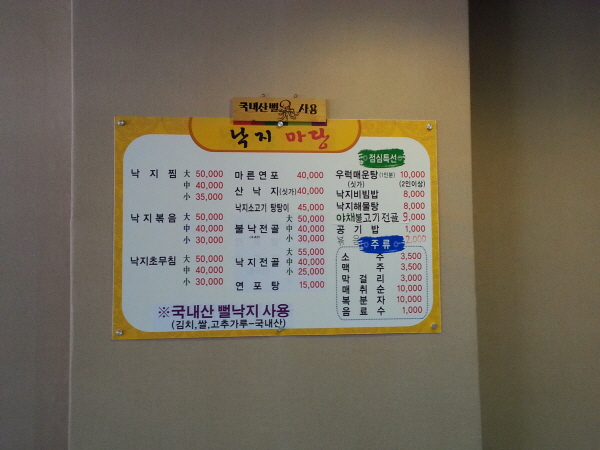 국내산뻘 사용
낙지 마당
낙 지 찜 大 50,000
中 40,000
小 35,000
낙지볶음 大 50,000
中 40,000
小 30,000
낙지초무침 大 50,000
中 40,000
小 30,000
마른연포 40,000
산 낙 지 (싯가) 40,000
낙지소고기 탕탕이 45,000
大 50,000
불낙전골 中 40,000
小 30,000
大 55,000
낙지전골 中 40,000
小 25,000
연 포 탕 15,000
점심특선
우럭매운탕 (1인분) 10,000
(싯가) (2인이상)
낙지비빔밥 8,000
낙지해물탕 8,000
야채불고기전골 9,000
공 기 밥 1,000
2,000
주 류
소 주 3,500
맥 주 3,500
막 걸 리 3,000
매 취 순 10,000
복 분 자 10,000
음 료 수 1,000
※국내산 뻘낙지 사용
(김치,쌀,고추가루-국내산)